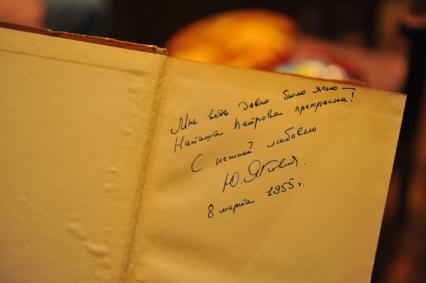 Мне ведь давно было ясно —
Наташа Петрова прекрасна!
С нежной любовью
Ю.
8 марта 1955 г.